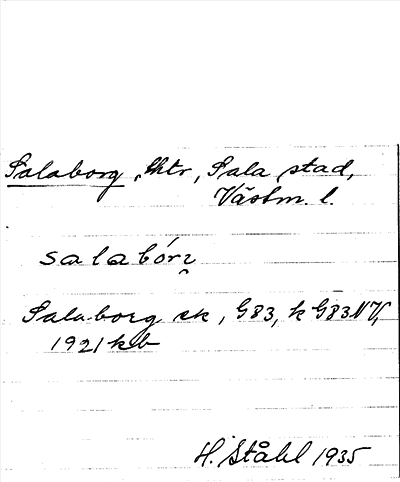 Salaborg, lhtr, Sala stad,
Västm. l.
salabórg
Salaborg ek, G83, k G83NV,
1921 kb
H. Ståhl 1935